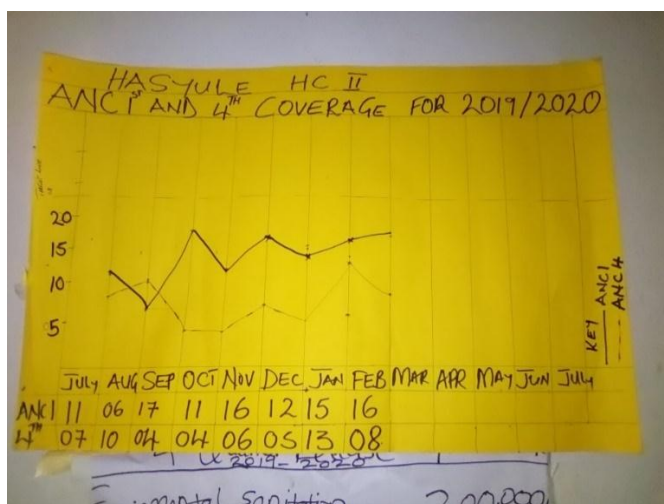 HASYULE HC II
ANC 1ST AND 4TH COVERAGE FOR 2019/2020
20
15
10
5
KEY
ANC1
ANC4
JULY AUG SEP OCT NOV DEC JAN FEB MAR APR MAY JUN JULY
ANC1 11 06 17 11 16 12 15 16
4TH 07 10 04 04 06 05 13 08
2019-2020
Sanitation 200,000